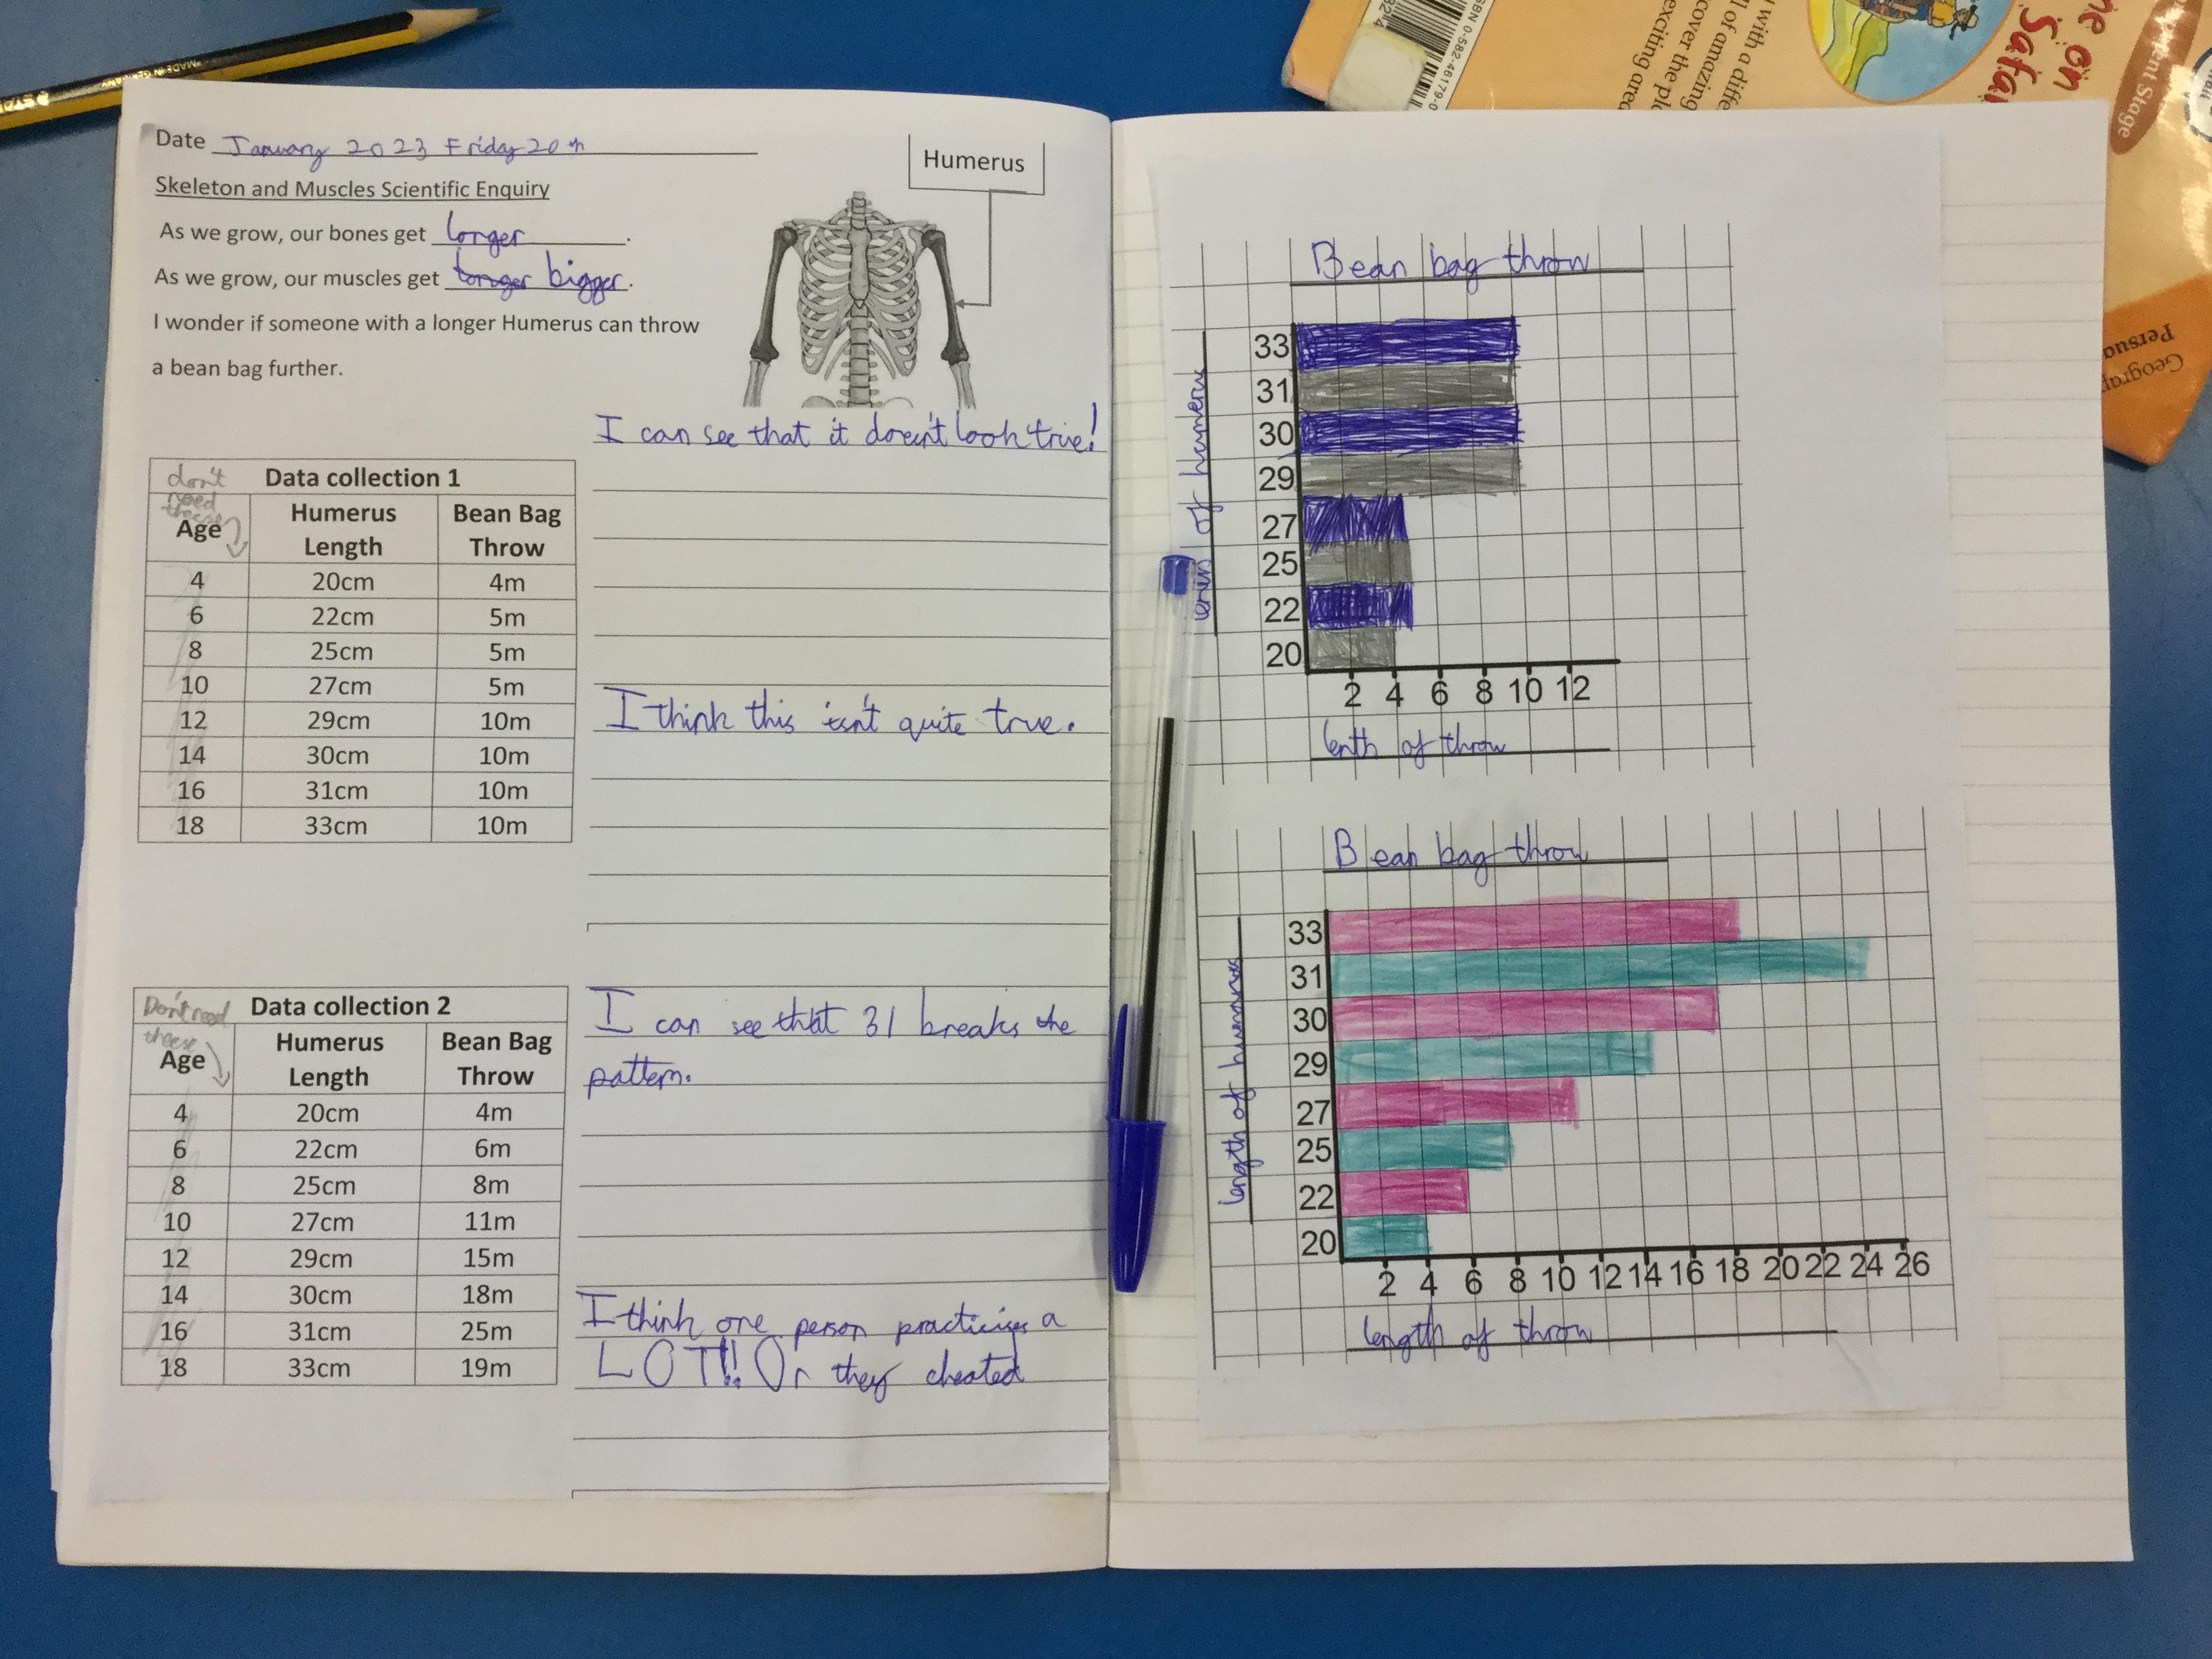 MADE IN GERMANY
Date January 2023 Friday 20th
Skeleton and Muscles Scientific Enquiry
As we grow, our bones get longer.
As we grow, our muscles get longer bigger.
I wonder if someone with a longer Humerus can throw
a bean bag further.
Humerus
I can see that it doesn't look true!
I think this isn't quite true.
don't need these
Data collection 1
Age Humerus Length Bean Bag Throw
4 20cm 4m
6 22cm 5m
8 25cm 5m
10 27cm 5m
12 29cm 10m
14 30cm 10m
16 31cm 10m
18 33cm 10m
Don't need these
Data collection 2
Age Humerus Length Bean Bag Throw
4 20cm 4m
6 22cm 6m
8 25cm 8m
10 27cm 11m
12 29cm 15m
14 30cm 18m
16 31cm 25m
18 33cm 19m
I can see that 31 breaks the
pattern.
I think one person practicises a
LOT!! Or they cheated
Bean bag throw
of humerus
33
31
30
29
27
25
22
20
2 4 6 8 10 12
lenth of throw
Bean bag throw
length of humerus
33
31
30
29
27
25
22
20
2 4 6 8 10 12 14 16 18 20 22 24 26
length of throw
ISBN 0-582-46179-0
with a diffe
l of amazing
cover the pl
exciting area
ne on
Safa
Stage
Geograp
Persua